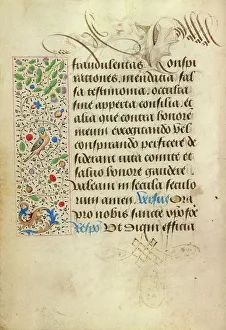 fraudulentas Conspi
rationes, mendacia fal
sa testimonia, occulta
siue apperta consilia, et
alia que contra honore
meum excogitando vel
conspirando perficere de
siderant tuta comite et
saluo honore gaudere
valeam in secula seculo
rum amen Versus Ora
pro nobis sancte
Respo Ut digni efficia